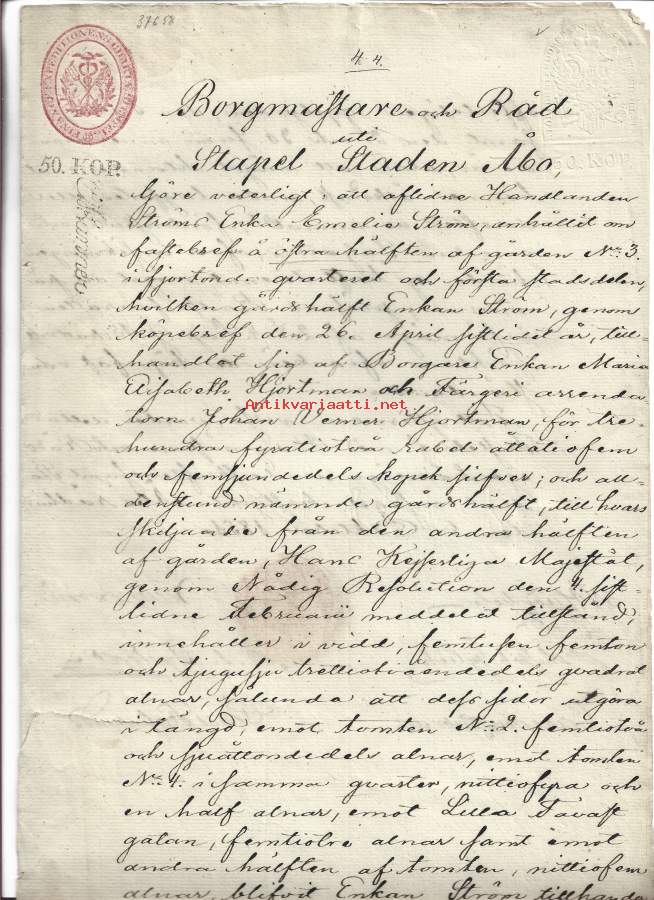 37658
44.
Borgmästare och Råd
uti
Stapel Staden Åbo,
50. KOP.
50. KOP.
Göre veterligt: att aflidne Handlanden
Ströms Enka Emelie Ström, anhållit om
fastebref å östra hälften af gården No 3.
i fjortonde qvarteret och första stadsdelen,
hvilken gårdshälft Enkan Ström, genom
köpebref den 26. April sistlidet år, till-
handlat sig af Borgare Enkan Maria
Elisabeth Hjortman och Färgeri arrenda
Antikvariaatti.net
torn Johan Verner Hjortman, för tre-
hundra fyratiotvå rubel åttatiofem
och femsjundedels kopek silfver; och all-
denstund nämnde gårdshälft, till hvars
skiljande från den andra hälften
af gården, Hans Kejserliga Majestät,
genom Nådig Resolution den 4. sist-
lidne Februarii meddelat tillstånd,
innehåller i vidd, femtusen femton
och tjugusju trettiotiondedels qvadrat
alnar, sålunda att dess sidor utgöra
i längd, emot tomten No 2. femtiotvå
och sjuåttondedels alnar, emot tomten
No 4. i samma qvarter, nittiofyra och
en half alnar, emot Lilla Tavast
gatan, femtiotre alnar samt emot
andra hälften af tomten, nittiofem
alnar, blifvit Enkan Ström tillhanda